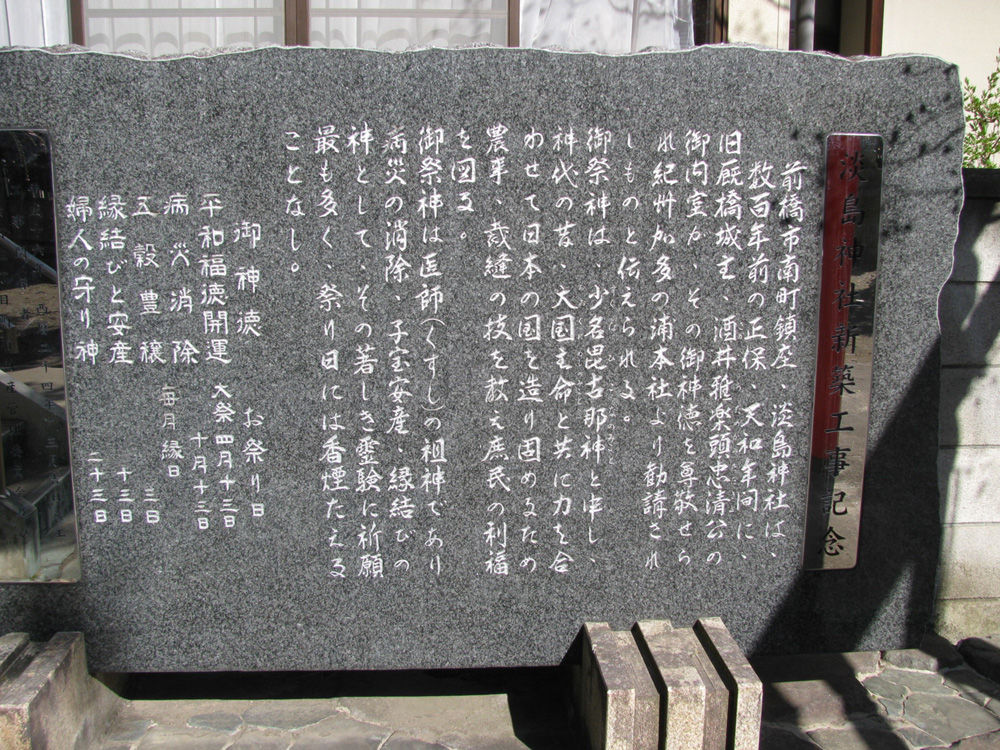 淡島神社新築工事記念
前橋市南町鎮座、淡島神社は、
数百年前の正保、天和年間に、
旧厩橋城主、酒井雅楽頭忠清公の
御内室が、その御神徳を尊敬せら
れ紀州加多の浦本社より勧請され
しものと伝えられる。
御祭神は、少名毘古那神と申し、
神代の昔、大国主命と共に力を合
わせて日本の国を造り固めるため
農事、裁縫の技を教え庶民の利福
を図る。
御祭神は医師(くすし)の祖神であり
病災の消除、子宝安産、縁結びの
神として、その著しき霊験に祈願
最も多く、祭り日には香煙たえる
ことなし。
御神徳
平和福徳開運
病災消除
五穀豊穣
縁結びと安産
婦人の守り神
お祭り日
大祭 四月十三日
十月十三日
毎月縁日
三日
十三日
二十三日